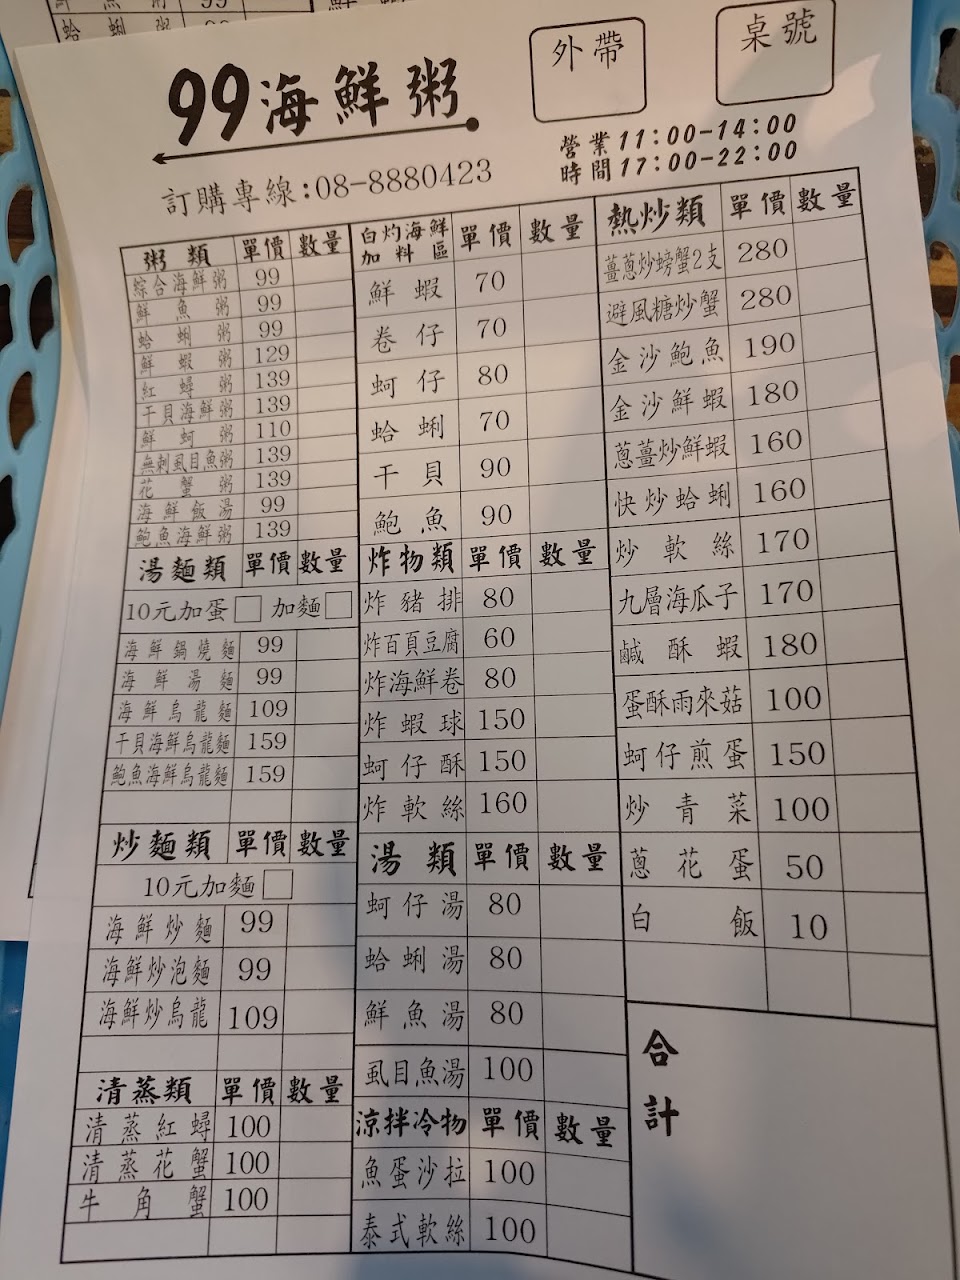 鮮魚粥 99
蛤蜊粥
99海鮮粥
外帶
桌號
訂購專線:08-8880423
營業時間 11:00-14:00
17:00-22:00
粥類 單價 數量
綜合海鮮粥 99
鮮魚粥 99
蛤蜊粥 99
鮮蝦粥 129
紅蟳粥 139
干貝海鮮粥 139
鮮蚵粥 110
無刺虱目魚粥 139
花蟹粥 139
海鮮飯湯 99
鮑魚海鮮粥 139
湯麵類 單價 數量
10元加蛋□ 加麵□
海鮮鍋燒麵 99
海鮮湯麵 99
海鮮烏龍麵 109
干貝海鮮烏龍麵 159
鮑魚海鮮烏龍麵 159
炒麵類 單價 數量
10元加麵□
海鮮炒麵 99
海鮮炒泡麵 99
海鮮炒烏龍 109
清蒸類 單價 數量
清蒸紅蟳 100
清蒸花蟹 100
牛角蟹 100
白灼海鮮加料區 單價 數量
鮮蝦 70
卷仔 70
蚵仔 80
蛤蜊 70
干貝 90
鮑魚 90
炸物類 單價 數量
炸豬排 80
炸百頁豆腐 60
炸海鮮卷 80
炸蝦球 150
蚵仔酥 150
炸軟絲 160
湯類 單價 數量
蚵仔湯 80
蛤蜊湯 80
鮮魚湯 80
虱目魚湯 100
涼拌冷物 單價 數量
魚蛋沙拉 100
泰式軟絲 100
熱炒類 單價 數量
薑蔥炒螃蟹2支 280
避風糖炒蟹 280
金沙鮑魚 190
金沙鮮蝦 180
蔥薑炒鮮蝦 160
快炒蛤蜊 160
炒軟絲 170
九層海瓜子 170
鹹酥蝦 180
蛋酥雨來菇 100
蚵仔煎蛋 150
炒青菜 100
蔥花蛋 50
白飯 10
合計